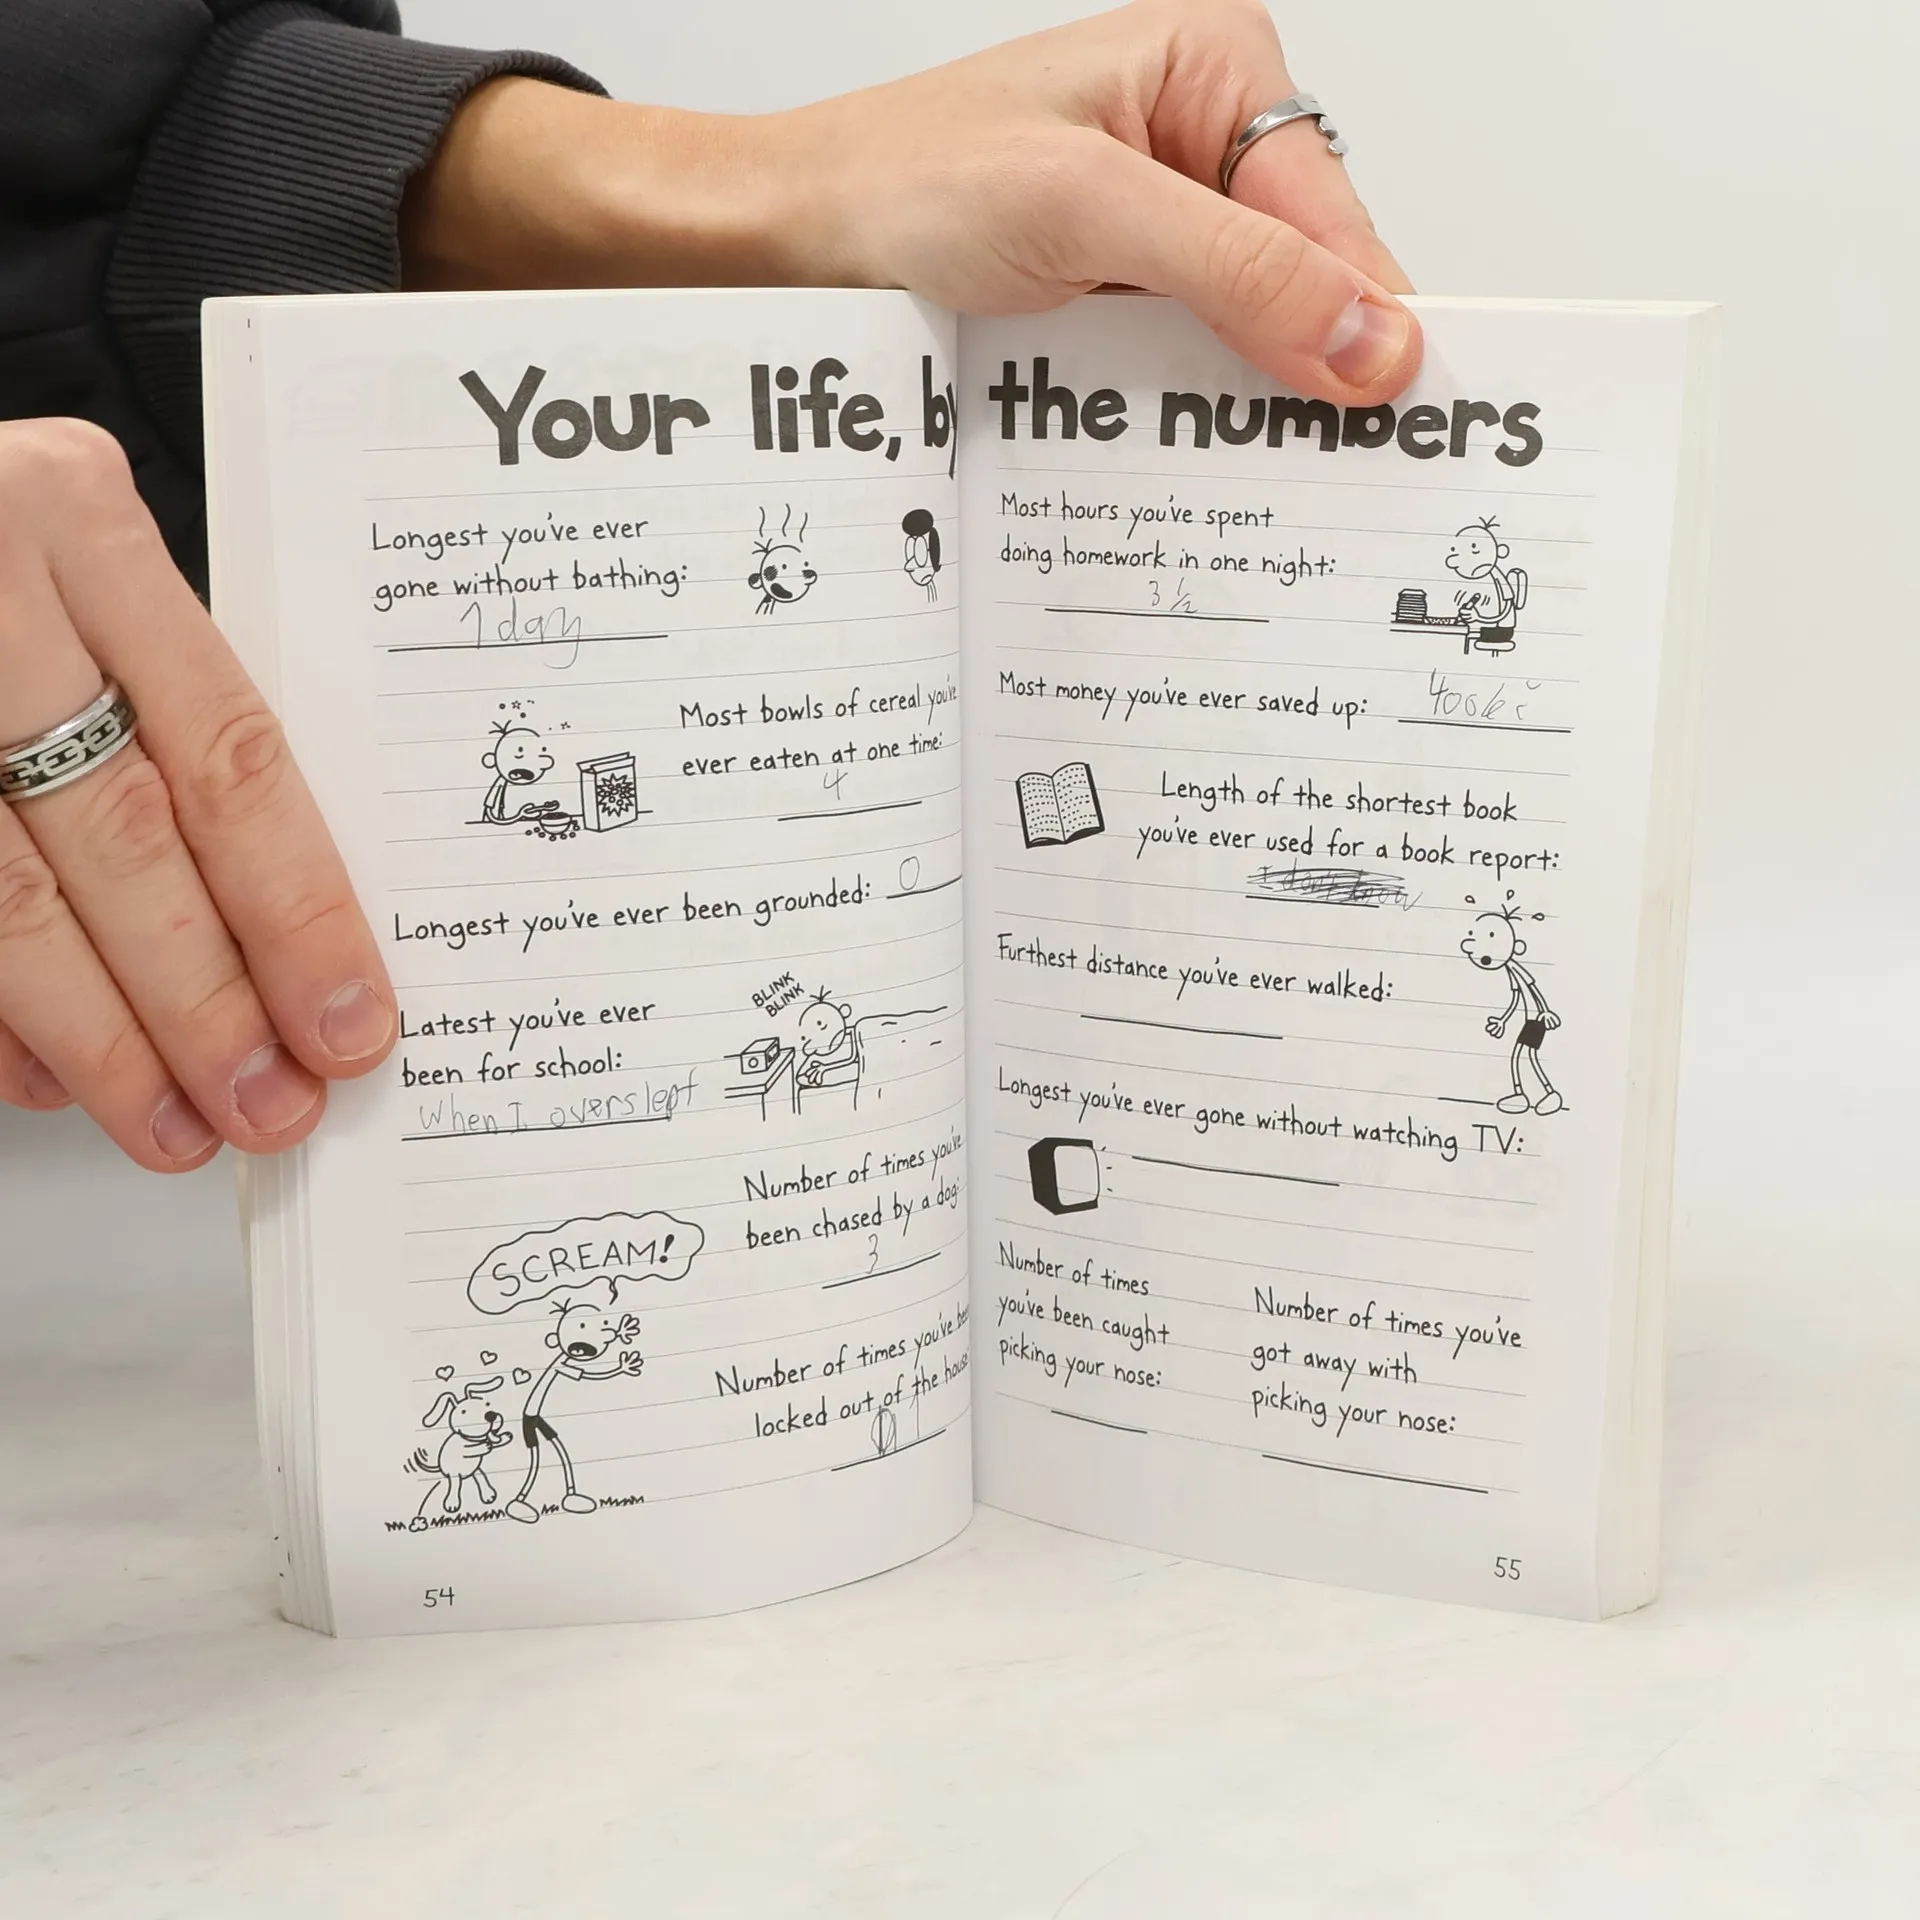 Your life, by the numbers
Longest you've ever
gone without bathing:
1 day
Most bowls of cereal you've
ever eaten at one time:
4
Longest you've ever been grounded: 0
BLINK
BLINK
Latest you've ever
been for school:
When I overslept
Number of times you've
been chased by a dog:
3
SCREAM!
Number of times you've been
locked out of the house:
54
Most hours you've spent
doing homework in one night:
3 1/2
Most money you've ever saved up: 400kč
Length of the shortest book
you've ever used for a book report:
I don't know
Furthest distance you've ever walked:
Longest you've ever gone without watching TV:
Number of times
you've been caught
picking your nose:
Number of times you've
got away with
picking your nose:
55